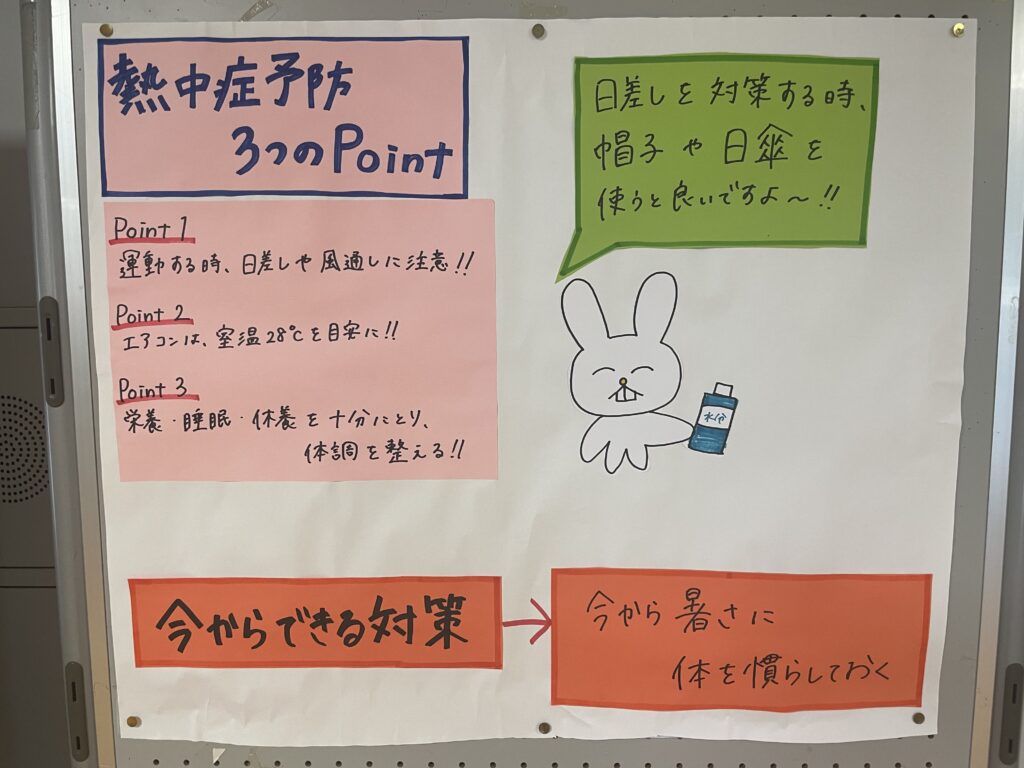 熱中症予防
3つのPoint
Point 1
運動する時、日差しや風通しに注意!!
Point 2
エアコンは、室温28℃を目安に!!
Point 3
栄養・睡眠・休養を十分にとり、
体調を整える!!
日差しを対策する時、
帽子や日傘を
使うと良いですよ～!!
水分
今からできる対策
→
今から暑さに
体を慣らしておく